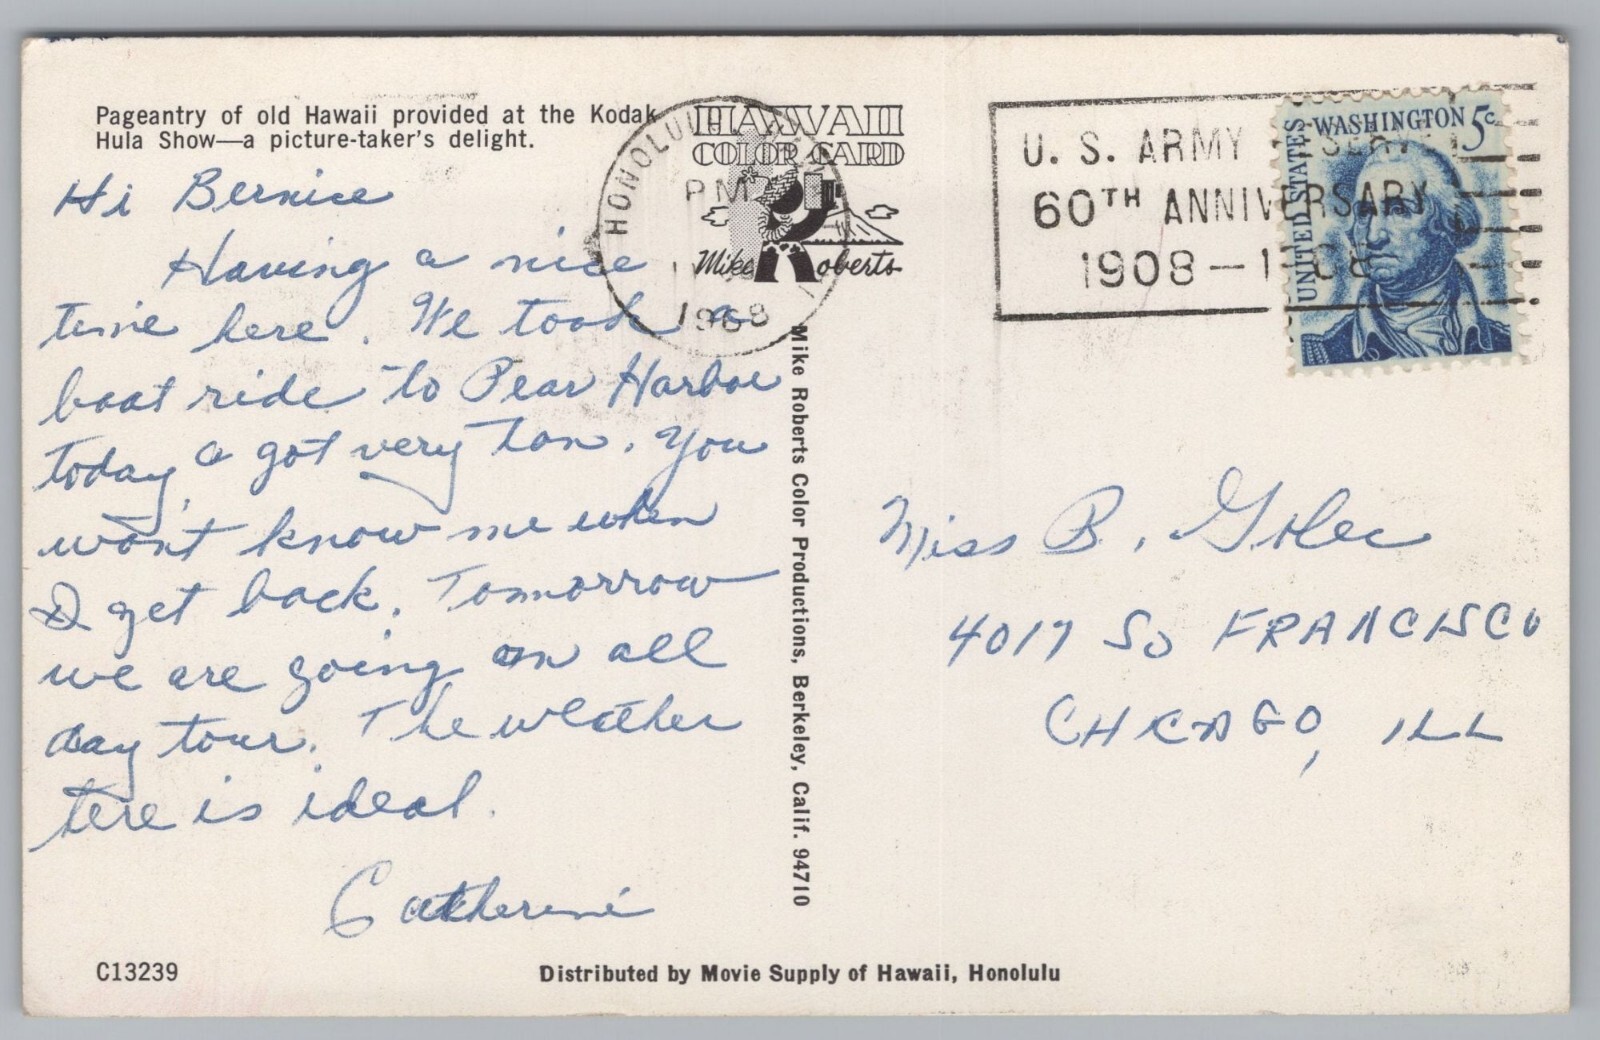 Pageantry of old Hawaii provided at the Kodak
Hula Show—a picture-taker's delight.
Hi Bernice
Having a nice
time here. We took a
boat ride to Pear Harbor
today & got very tan. You
won't know me when
I get back. Tomorrow
we are going on all
day tour. The weather
tere is ideal.
Catherine
C13239
Distributed by Movie Supply of Hawaii, Honolulu
Mike Roberts Color Productions, Berkeley, Calif. 94710
HAWAII
COLOR CARD
Mike Roberts
HONOLULU
PM
1968
U. S. ARMY
60TH ANNIVERSARY
1908 –
UNITED STATES
WASHINGTON 5c
Miss B. Golec
4017 So FRANCISCO
CHICAGO, ILL